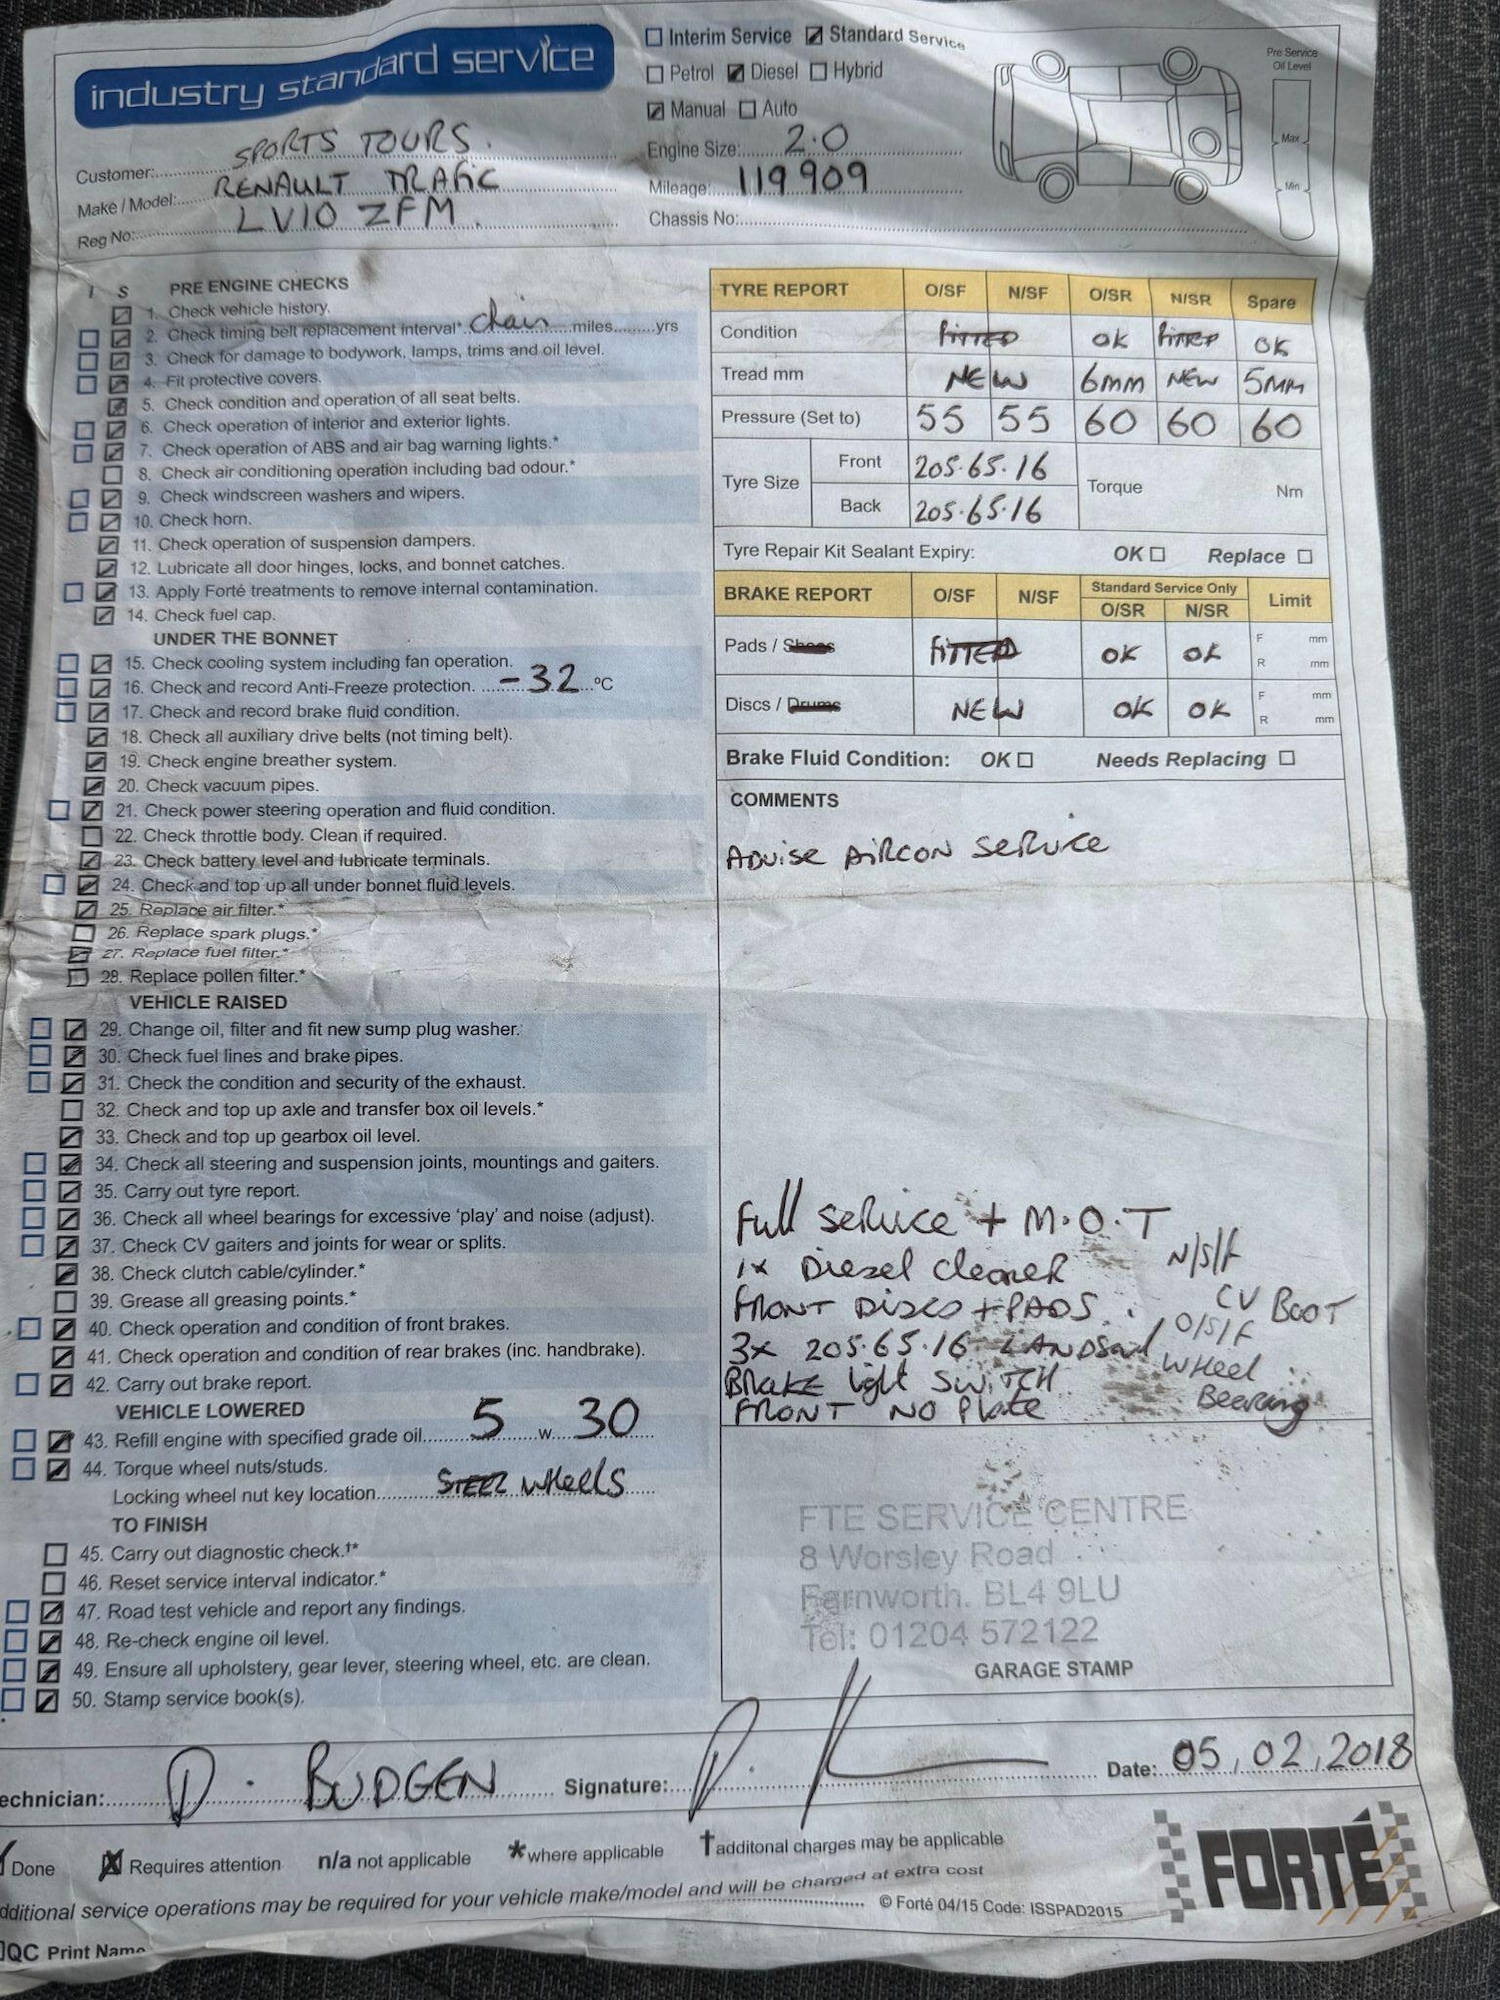 industry standard service
Interim Service Standard Service
Petrol Diesel Hybrid
Manual Auto
Engine Size: 2.0
Mileage: 119909
Chassis No:
Pre Service
Oil Level
Max
Min
Customer: SPORTS TOURS.
Make / Model: RENAULT TRAFIC
Reg No: LV10 ZFM.
I S PRE ENGINE CHECKS
1. Check vehicle history.
2. Check timing belt replacement interval* chain miles yrs
3. Check for damage to bodywork, lamps, trims and oil level.
4. Fit protective covers.
5. Check condition and operation of all seat belts.
6. Check operation of interior and exterior lights.
7. Check operation of ABS and air bag warning lights.*
8. Check air conditioning operation including bad odour.*
9. Check windscreen washers and wipers.
10. Check horn.
11. Check operation of suspension dampers.
12. Lubricate all door hinges, locks, and bonnet catches.
13. Apply Forté treatments to remove internal contamination.
14. Check fuel cap.
UNDER THE BONNET
15. Check cooling system including fan operation.
16. Check and record Anti-Freeze protection. -32 °C
17. Check and record brake fluid condition.
18. Check all auxiliary drive belts (not timing belt).
19. Check engine breather system.
20. Check vacuum pipes.
21. Check power steering operation and fluid condition.
22. Check throttle body. Clean if required.
23. Check battery level and lubricate terminals.
24. Check and top up all under bonnet fluid levels.
25. Replace air filter.*
26. Replace spark plugs.*
27. Replace fuel filter.*
28. Replace pollen filter.*
VEHICLE RAISED
29. Change oil, filter and fit new sump plug washer.
30. Check fuel lines and brake pipes.
31. Check the condition and security of the exhaust.
32. Check and top up axle and transfer box oil levels.*
33. Check and top up gearbox oil level.
34. Check all steering and suspension joints, mountings and gaiters.
35. Carry out tyre report.
36. Check all wheel bearings for excessive 'play' and noise (adjust).
37. Check CV gaiters and joints for wear or splits.
38. Check clutch cable/cylinder.*
39. Grease all greasing points.*
40. Check operation and condition of front brakes.
41. Check operation and condition of rear brakes (inc. handbrake).
42. Carry out brake report.
VEHICLE LOWERED
43. Refill engine with specified grade oil 5 w 30
44. Torque wheel nuts/studs.
Locking wheel nut key location STEEL wheels
TO FINISH
45. Carry out diagnostic check.†*
46. Reset service interval indicator.*
47. Road test vehicle and report any findings.
48. Re-check engine oil level.
49. Ensure all upholstery, gear lever, steering wheel, etc. are clean.
50. Stamp service book(s).
TYRE REPORT O/SF N/SF O/SR N/SR Spare
Condition FITTED OK FITTED OK
Tread mm NEW 6mm NEW 5MM
Pressure (Set to) 55 55 60 60 60
Tyre Size Front 205.65.16 Torque Nm
Back 205.65.16
Tyre Repair Kit Sealant Expiry: OK Replace
BRAKE REPORT O/SF N/SF Standard Service Only Limit
O/SR N/SR
Pads / Shoes FITTED OK OK F mm
R mm
Discs / Drums NEW OK OK F mm
R mm
Brake Fluid Condition: OK Needs Replacing
COMMENTS
ADVISE AIRCON SERVICE
Full service + M.O.T
1x Diesel cleaner N/S/F
FRONT DISCS + PADS. CV BOOT
3x 205.65.16 LANDSail O/S/F
BRAKE light SWITCH Wheel
FRONT NO Plate Bearing
FTE SERVICE CENTRE
8 Worsley Road
Farnworth. BL4 9LU
Tel: 01204 572122
GARAGE STAMP
echnician: D. BUDGEN Signature: Date: 05.02.2018
Done Requires attention n/a not applicable *where applicable †additonal charges may be applicable
dditional service operations may be required for your vehicle make/model and will be charged at extra cost
© Forté 04/15 Code: ISSPAD2015
FORTÉ
QC Print Name